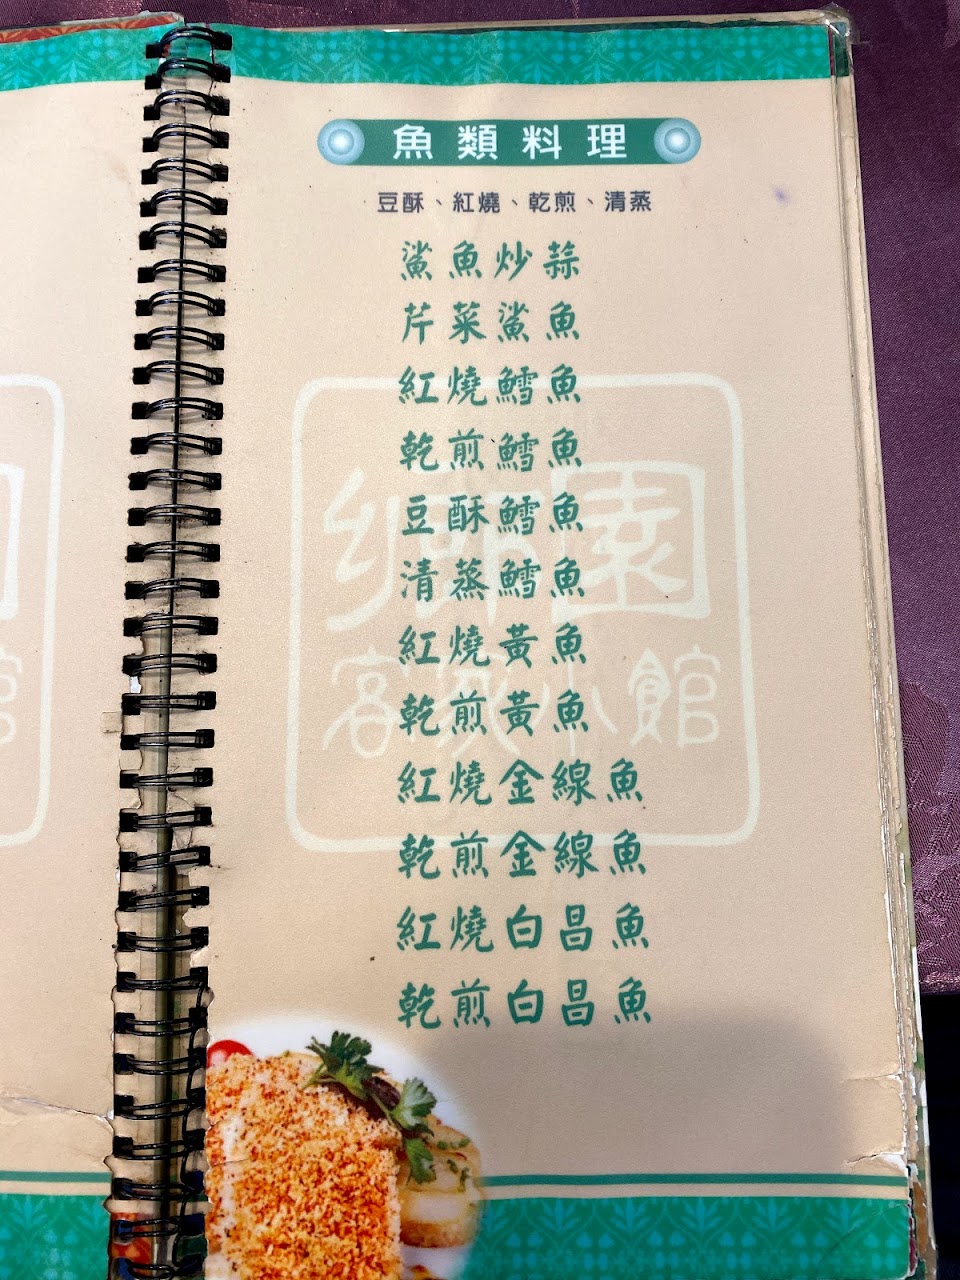 魚類料理
豆酥、紅燒、乾煎、清蒸
鯊魚炒蒜
芹菜鯊魚
紅燒鱈魚
乾煎鱈魚
豆酥鱈魚
清蒸鱈魚
紅燒黃魚
乾煎黃魚
紅燒金線魚
乾煎金線魚
紅燒白昌魚
乾煎白昌魚
鄉園
客家小館
館